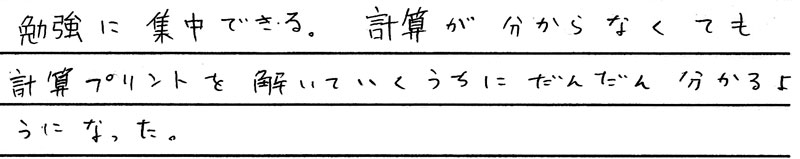 勉強に集中できる。計算が分からなくても
計算プリントを解いていくうちにだんだん分かるよ
うになった。